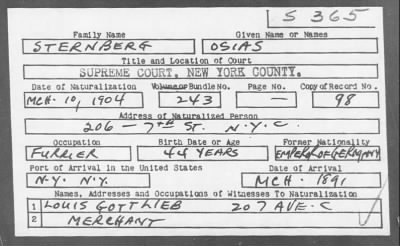 S 365
Family Name Given Name or Names
STERNBERG OSIAS
Title and Location of Court
SUPREME COURT, NEW YORK COUNTY.
Date of Naturalization Volume or Bundle No. Page No. Copy of Record No.
MCH. 10, 1904 243 — 98
Address of Naturalized Person
206 — 7TH ST. N.Y.C.
Occupation Birth Date or Age Former Nationality
FURRIER 44 YEARS EMPEROR OF GERMANY
Port of Arrival in the United States Date of Arrival
N.Y. N.Y. MCH. 1891
Names, Addresses and Occupations of Witnesses To Naturalization
1 LOUIS GOTTLIEB 207 AVE. C
2 MERCHANT